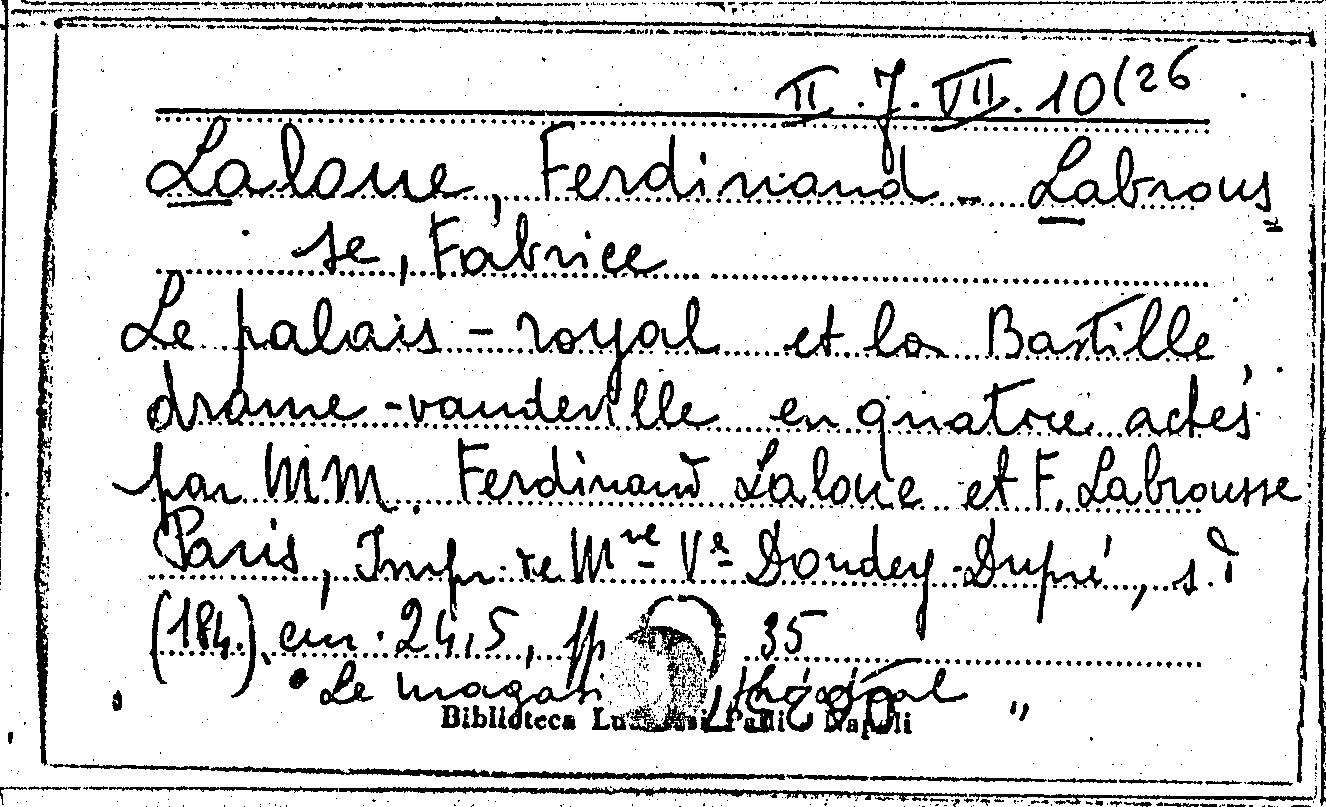 II.7.VII.10(26
Laloue, Ferdinand - Labrous
se, Fabrice
Le palais-royal et la Bastille,
drame-vaudeville en quatre actes
par MM. Ferdinand Laloue et F. Labrousse
Paris, Impr. de Mme Ve Dondey-Dupré, s.d
(184.) cm. 24,5, pp. 35
"Le magasin théâtral"
Biblioteca Lucchesi Palli Napoli